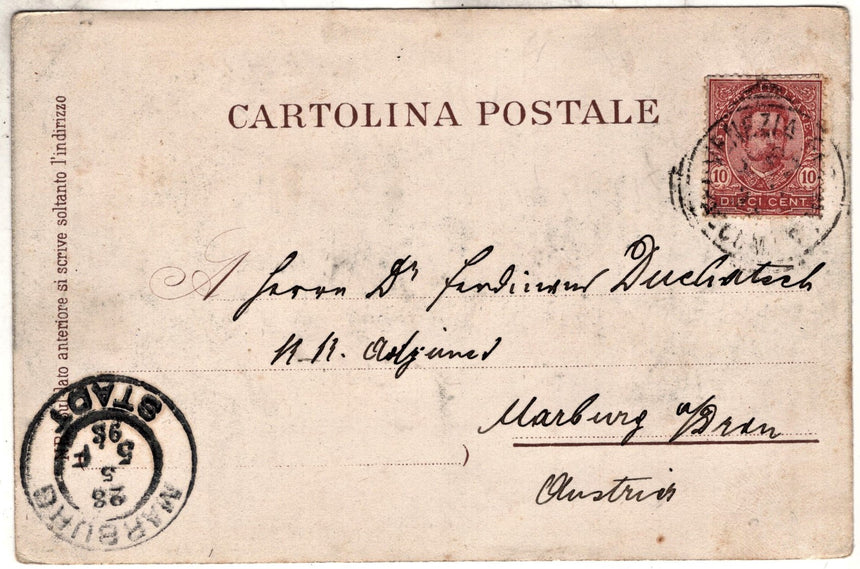 CARTOLINA POSTALE
NB. Sul lato anteriore si scrive soltanto l'indirizzo
10 10
DIECI CENT.
VENEZIA
A Herrn Dr Ferdinand Duchatsch
K. K. Adjunct
Marburg a/Drau
Austria
MARBURG
STADT
28
5
98
5